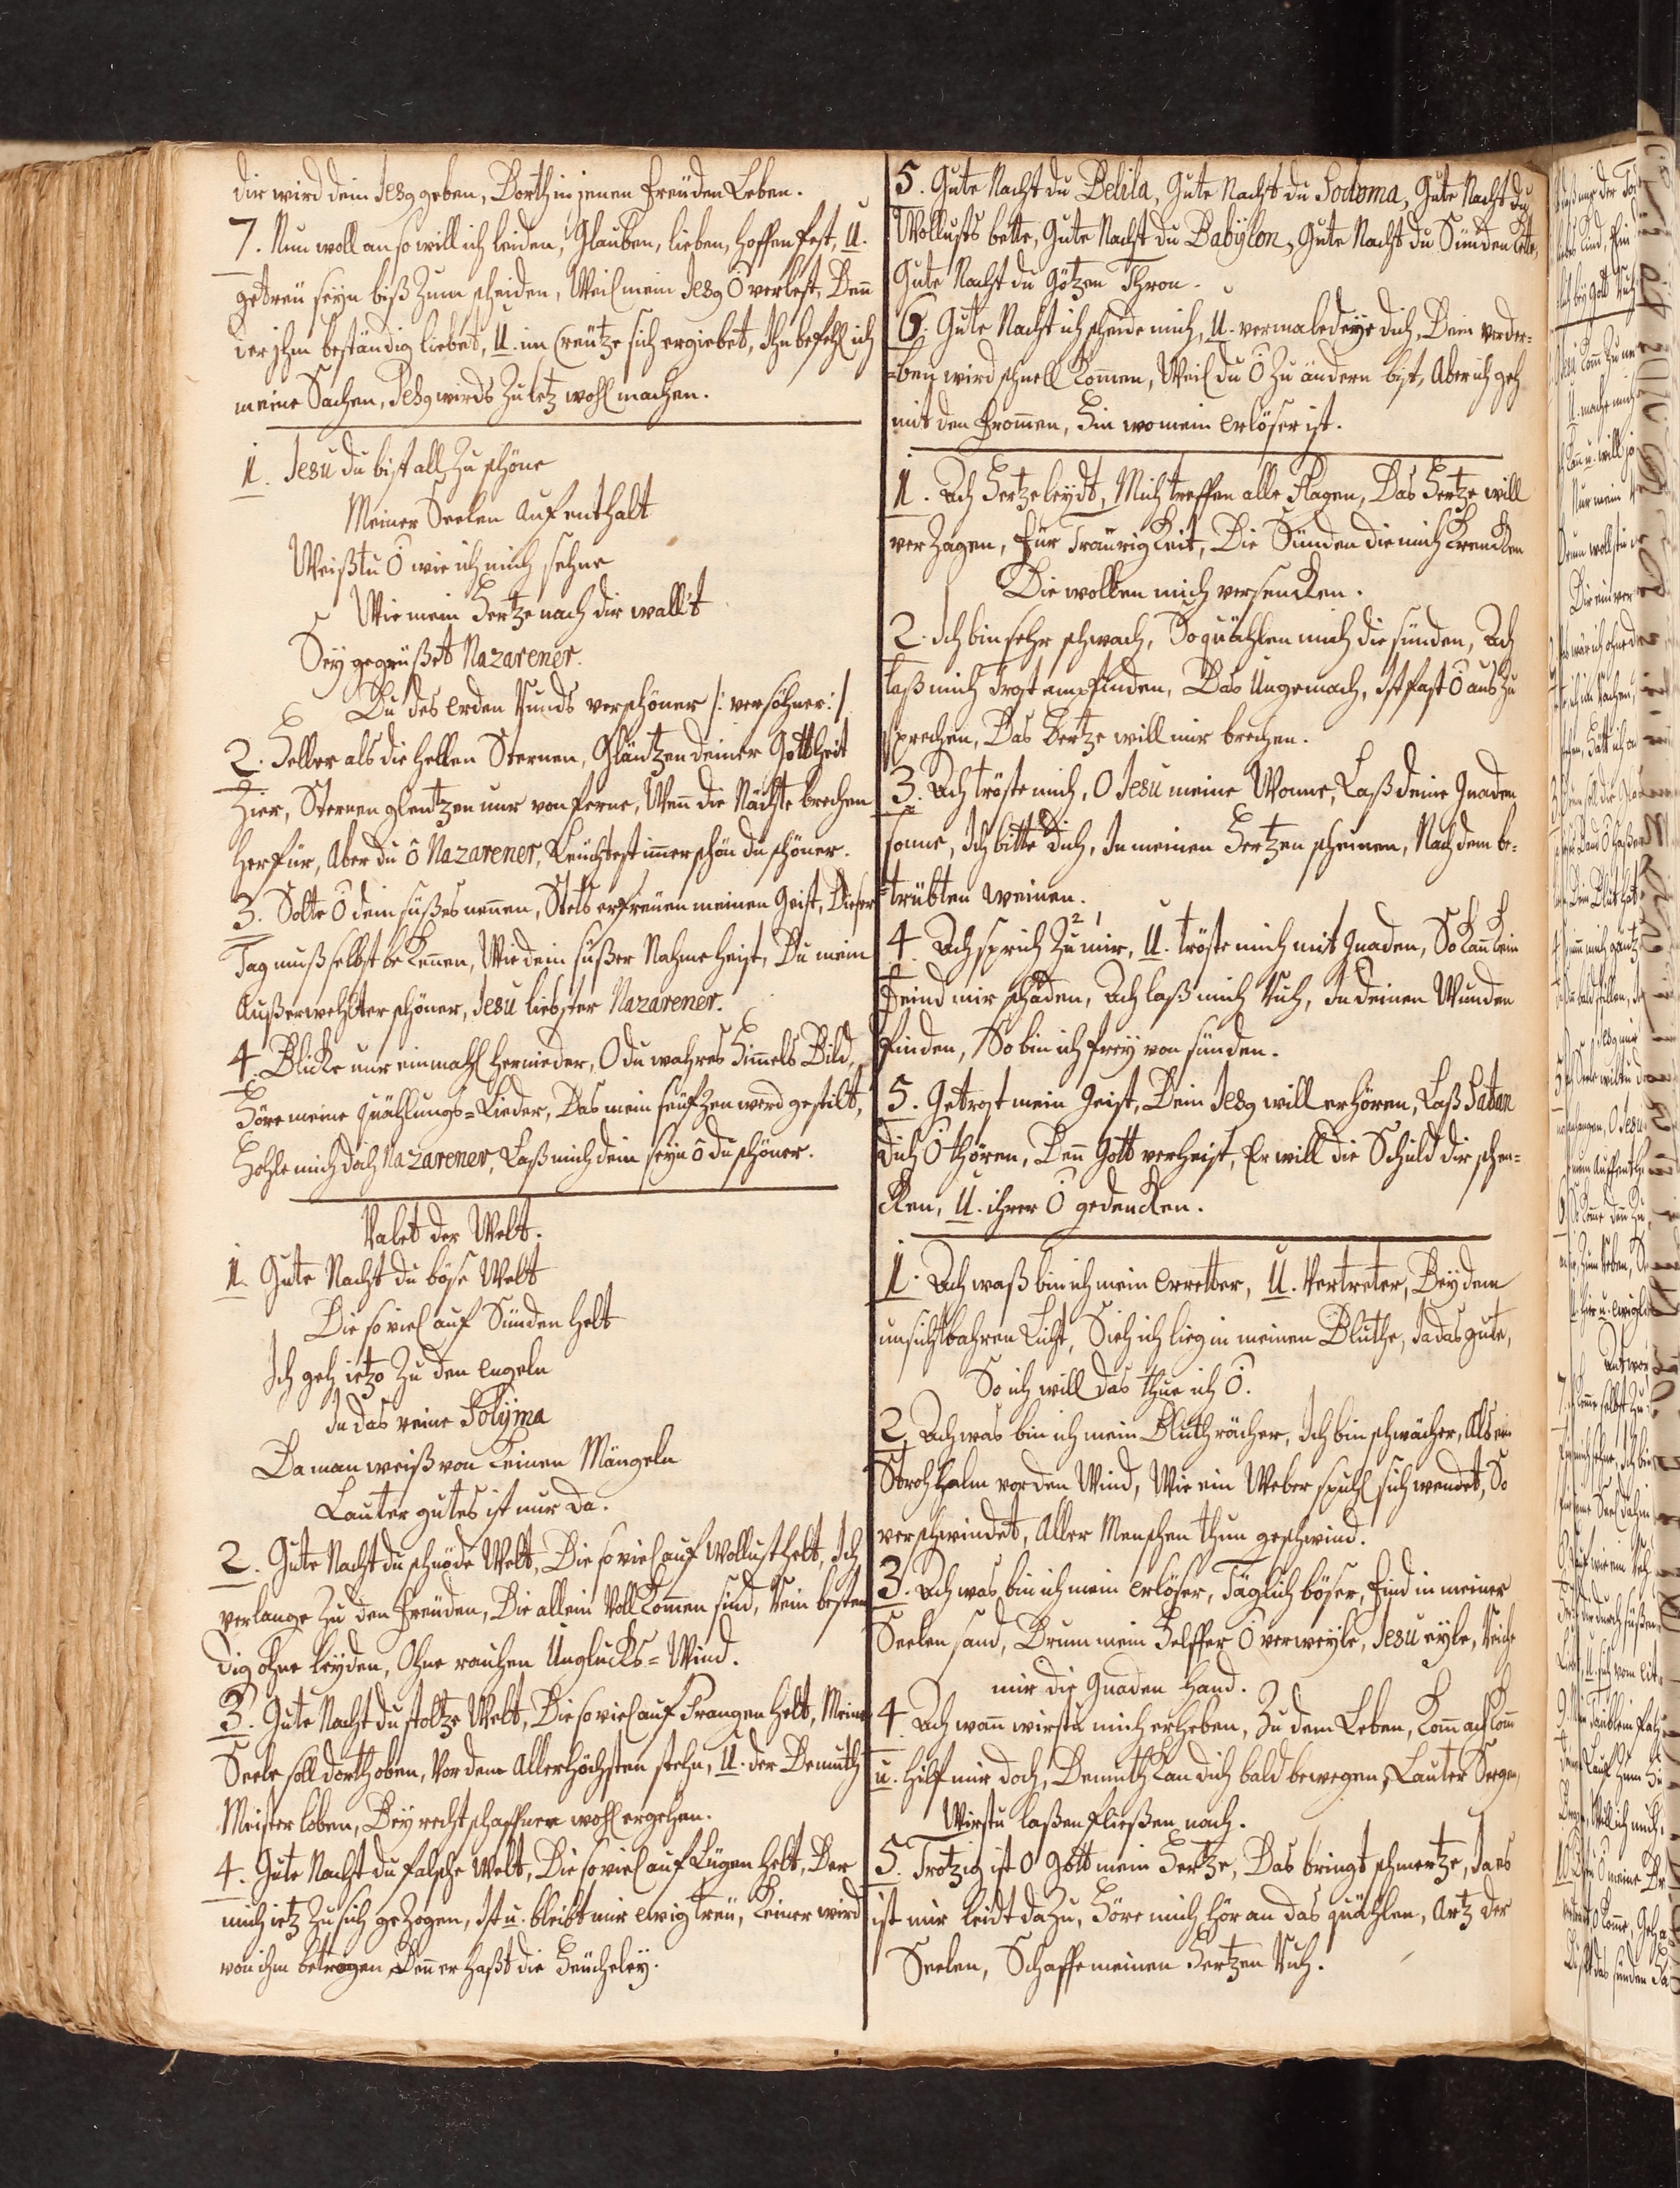 dir wird dein Jesg geben, Dorth in jenen Freuden Leben.
7. Nun woll an so will ich leiden, Glauben, lieben, hoffen fest, U.
getreu seyn biß zum scheiden, Weil mein Jesg Ô verlest, Denn
der jhm beständig liebet, U. im Creutze sich ergiebet, Ihn befehl ich
meine Sachen, Jesg wirds zu letz wohl machen.
1. Jesu du bist all zu schöne
Meiner Seelen auffenthalt
Weißtu Ô wie ich mich sehne
Wie mein Hertze nach dir wall't
Sey gegrüßet Nazarener.
Du des Erden Runds verschöner /: versöhner :/
2. Heller als die hellen Sternen, Gläntzen deiner Gottheit
Zier, Sternen glentzen nur von ferne, Wenn die Nächte brechen
herfür, Aber du ô Nazarener, Leuchtest immer schön du schöner.
3. Solte Ô dein süßes nennen, Stets erfreuen meinen Geist, Dieser
Tag muß selbst bekennen, Wie dein süßer Nahme heist, Du mein
Außerwehlter schöner, Jesu liebster Nazarener.
4. Blicke nur einmahl hernieder, O du wahres Himels Bild,
Höre meine quählungs=Lieder, Das mein seufzen werd gestilt,
Hohle mich doch Nazarener, Laß mich dein seyn ô du schöner.
Valet der Welt.
1. Gute Nacht du böse Welt
Die so viel auf Sünden helt
Ich geh ietzo zu den Engeln
In das reine Solyma
Da man weiß von keinen Mängeln
Lauter gutes ist nur da.
2. Gute Nacht du schnöde Welt, Die so viel auf Wollust helt, Ich
verlange zu den Freuden, Die allein Vollkommen sind, Rein besten
dig ohne leyden, Ohne rauhen Unglücks=Wind.
3. Gute Nacht du stoltze Welt, Die so viel auf Prangen helt, Meine
Seele soll dorth oben, Vor dem Allerhöchsten stehn, U. der Demuth
Meister loben, Bey rechtschaffner wohl ergehen.
4. Gute Nacht du falsche Welt, Die so viel auf Lügen helt, Der
mich ietz zu sich gezogen, Ist u. bleibt mir ewig treu, Keiner wird
von ihm betrogen, Denn er haßt die Heucheley.
5. Gute Nacht du Delila, Gute Nacht du Sodoma, Gute Nacht du
Wollusts bette, Gute Nacht du Babylon, Gute Nacht du Sünden Kette,
Gute Nacht du Götzen Thron.
6. Gute Nacht ich scheide mich, U. vermaledeye dich, Dein verder=
=ben wird schnell kommen, Weil du Ô zu ändern bist, Aber ich geh
mit den Frommen, Hin wo mein Erlöser ist.
1. Ach Hertzeleydt, Mich treffen alle Plagen, Das Hertze will
verzagen, Für Traurigkeit, Die Sünden die mich krencken
Die wollen mich versencken.
2. Ich bin sehr schwach, So quählen mich die sünden, Ach
laß mich Trost empfinden, Das Ungemach, Ist fast Ô aus zu
sprechen, Das Hertze will mir brechen.
3. Ach tröste mich, O Jesu meine Wonne, Laß deine Gnaden
sonne, Ich bitte Dich, In meinen Hertzen scheinen, Nach dem be=
=trübten weinen.
4. Ach sprich zu mir, U. tröste mich mit Gnaden, So kan kein
Feind mir schaden, Ach laß mich Ruh, In deinen Wunden
finden, So bin ich frey von sünden.
5. Getrost mein Geist, Dein Jesg will erhören, Laß Satan
dich Ô thören, Denn Gott verheist, Er will die Schuld dir schen=
cken, U. ihrer Ô gedencken.
1. Ach waß bin ich mein Erretter, U. Vertreter, Bey dem
unsichtbahren Licht, Sieh ich lieg in meinen Bluthe, Ja das gute,
So ich will das thue ich Ô.
2. Ach was bin ich mein Bluth rächer, Ich bin schwächer, Als ein
Strohhalm vor den Wind, Wie ein Weber spuhl sich wendet, So
verschwindet, Aller Menschen thun geschwind.
3. Ach was bin ich mein Erlöser, Täglich böser, Find in meiner
Seelen sand, Drum mein Helffer Ô verweyle, Jesu eyle, Reiche
mir die Gnaden Hand.
4. Ach wann wirstu mich erheben, Zu dem Leben, Komm ach komm
u. hilf mir doch, Demuth kan dich bald bewegen, Lauter Seegen,
Wirstu laßen fließen noch.
5. Trotzig ist O Gott mein Hertze, Das bringt schmertze, Ja es
ist mir leidt dazu, Höre mich hör an das quählen, Artz der
Seelen, Schaffe meinen Hertzen Ruh.